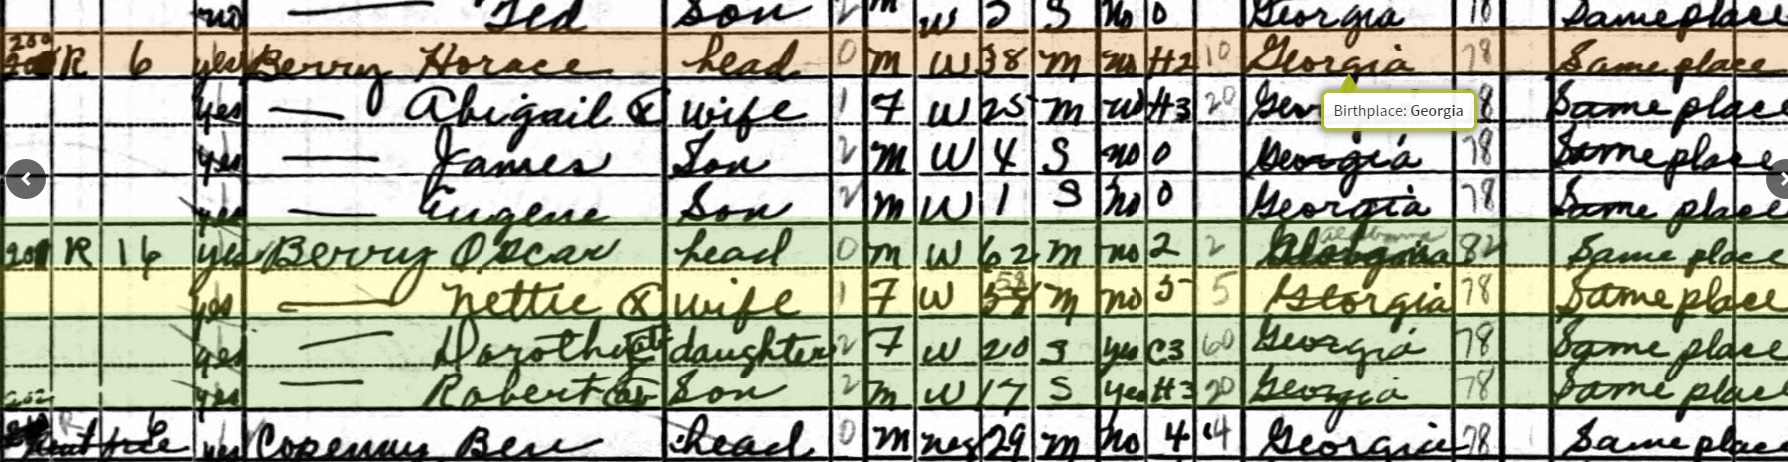 no — Ted Son 2 m W 2 S no 0 Georgia 78 Same place
R 6 yes Berry Horace head 0 m W 38 m no H2 10 Georgia 78 Same place
yes — Abigail wife 1 F W 25 m no H3 20 8 Same place
Birthplace: Georgia
yes — James Son 2 m W 4 S no 0 Georgia 78 Same place
yes — Eugene Son 2 m W 1 S no 0 Georgia 78 Same place
201 R 16 yes Berry Oscar head 0 m W 62 m no 2 2 Alabama 82 Same place
yes — Nettie wife 1 F W 58 m no 5 5 Georgia 78 Same place
yes — Dorothy daughter 2 F W 20 S yes C3 60 Georgia 78 Same place
202 yes — Robert Son 2 m W 17 S yes H3 20 Georgia 78 Same place
R yes Copenny Ben head 0 m neg 29 m no 4 4 Georgia 78 Same place